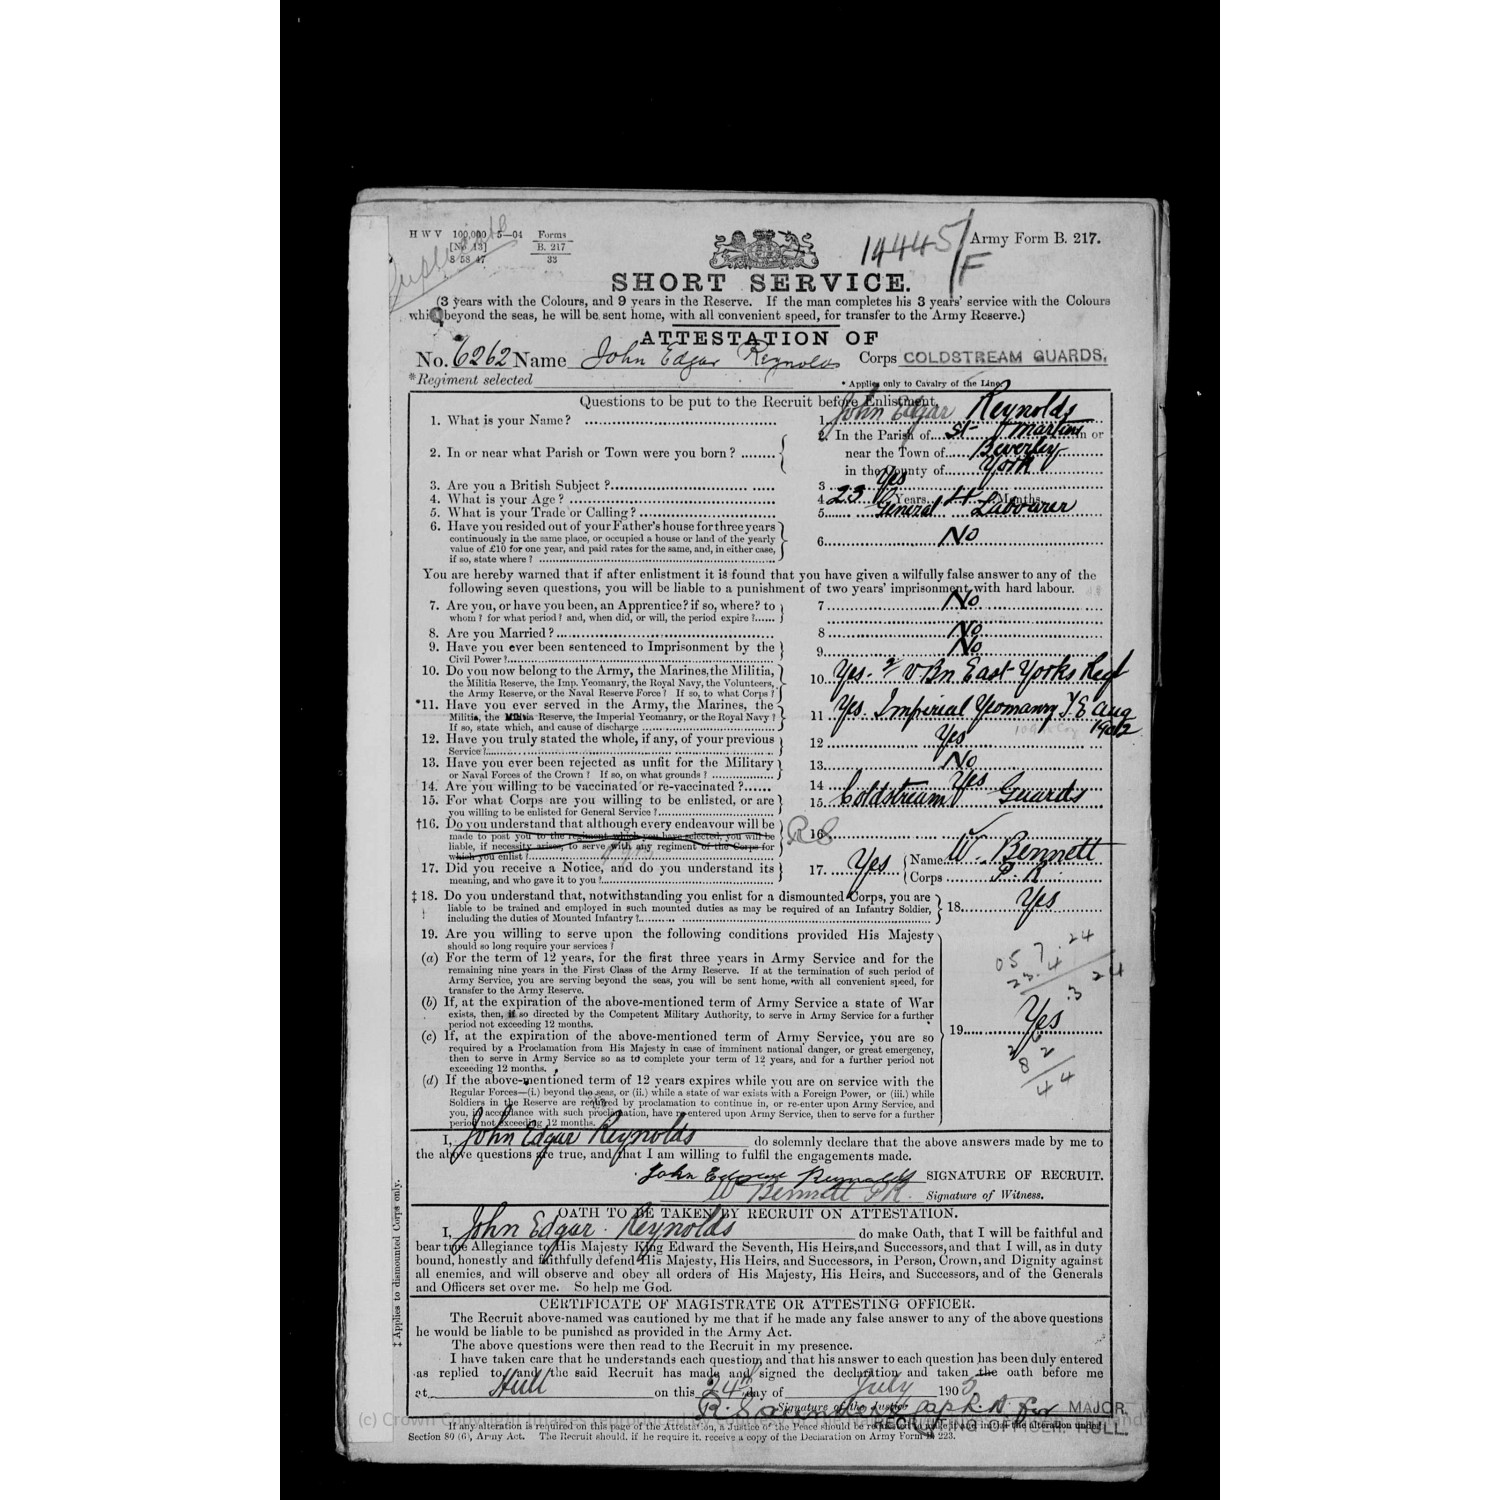 Duplicate
H W V 100,000 5—04 Forms
[No 13] B. 217
S 58 47 33
14445/F
Army Form B. 217.
SHORT SERVICE.
(3 years with the Colours, and 9 years in the Reserve. If the man completes his 3 years' service with the Colours
while beyond the seas, he will be sent home, with all convenient speed, for transfer to the Army Reserve.)
ATTESTATION OF
No. 6262 Name John Edgar Reynolds Corps COLDSTREAM GUARDS.
*Regiment selected * Applies only to Cavalry of the Line.
Questions to be put to the Recruit before Enlistment.
1. What is your Name? 1. John Edgar Reynolds
2. In or near what Parish or Town were you born? 2. In the Parish of St Martins in or
near the Town of Beverley
in the County of York
3. Are you a British Subject? 3. Yes
4. What is your Age? 4. 23 Years 4 Months
5. What is your Trade or Calling? 5. General Labourer
6. Have you resided out of your Father's house for three years
continuously in the same place, or occupied a house or land of the yearly
value of £10 for one year, and paid rates for the same, and, in either case,
if so, state where? 6. No
You are hereby warned that if after enlistment it is found that you have given a wilfully false answer to any of the
following seven questions, you will be liable to a punishment of two years' imprisonment with hard labour.
7. Are you, or have you been, an Apprentice? if so, where? to
whom? for what period? and, when did, or will, the period expire? 7 No
8. Are you Married? 8 No
9. Have you ever been sentenced to Imprisonment by the
Civil Power? 9. No
10. Do you now belong to the Army, the Marines, the Militia,
the Militia Reserve, the Imp. Yeomanry, the Royal Navy, the Volunteers,
the Army Reserve, or the Naval Reserve Force? If so, to what Corps? 10. Yes. 2 V Bn East Yorks Regt
*11. Have you ever served in the Army, the Marines, the
Militia, the Militia Reserve, the Imperial Yeomanry, or the Royal Navy?
If so, state which, and cause of discharge 11 Yes. Imperial Yeomanry T E Aug
1902
12. Have you truly stated the whole, if any, of your previous
Service? 12 Yes
13. Have you ever been rejected as unfit for the Military
or Naval Forces of the Crown? If so, on what grounds? 13. No
14. Are you willing to be vaccinated or re-vaccinated? 14 Yes
15. For what Corps are you willing to be enlisted, or are
you willing to be enlisted for General Service? 15. Coldstream Guards
†16. Do you understand that although every endeavour will be
made to post you to the regiment which you have selected, you will be
liable, if necessity arises, to serve with any regiment of the Corps for
which you enlist? 16
17. Did you receive a Notice, and do you understand its
meaning, and who gave it to you? 17. Yes Name W. Bennett
Corps P. R
‡ 18. Do you understand that, notwithstanding you enlist for a dismounted Corps, you are
liable to be trained and employed in such mounted duties as may be required of an Infantry Soldier,
including the duties of Mounted Infantry? 18. Yes
19. Are you willing to serve upon the following conditions provided His Majesty
should so long require your services?
(a) For the term of 12 years, for the first three years in Army Service and for the
remaining nine years in the First Class of the Army Reserve. If at the termination of such period of
Army Service, you are serving beyond the seas, you will be sent home, with all convenient speed, for
transfer to the Army Reserve.
(b) If, at the expiration of the above-mentioned term of Army Service a state of War
exists, then, if so directed by the Competent Military Authority, to serve in Army Service for a further
period not exceeding 12 months.
(c) If, at the expiration of the above-mentioned term of Army Service, you are so
required by a Proclamation from His Majesty in case of imminent national danger, or great emergency,
then to serve in Army Service so as to complete your term of 12 years, and for a further period not
exceeding 12 months.
(d) If the above-mentioned term of 12 years expires while you are on service with the
Regular Forces—(i.) beyond the seas, or (ii.) while a state of war exists with a Foreign Power, or (iii.) while
Soldiers in the Reserve are required by proclamation to continue in, or re-enter upon Army Service, and
you, in accordance with such proclamation, have re-entered upon Army Service, then to serve for a further
period not exceeding 12 months.
05 7 24
23. 4
3 24
19. Yes
I, John Edgar Reynolds do solemnly declare that the above answers made by me to
the above questions are true, and that I am willing to fulfil the engagements made.
John Edgar Reynolds SIGNATURE OF RECRUIT.
W Bennett P R. Signature of Witness.
OATH TO BE TAKEN BY RECRUIT ON ATTESTATION.
I, John Edgar Reynolds do make Oath, that I will be faithful and
bear true Allegiance to His Majesty King Edward the Seventh, His Heirs, and Successors, and that I will, as in duty
bound, honestly and faithfully defend His Majesty, His Heirs, and Successors, in Person, Crown, and Dignity against
all enemies, and will observe and obey all orders of His Majesty, His Heirs, and Successors, and of the Generals
and Officers set over me. So help me God.
‡ Applies to dismounted Corps only.
CERTIFICATE OF MAGISTRATE OR ATTESTING OFFICER.
The Recruit above-named was cautioned by me that if he made any false answer to any of the above questions
he would be liable to be punished as provided in the Army Act.
The above questions were then read to the Recruit in my presence.
I have taken care that he understands each question, and that his answer to each question has been duly entered
as replied to, and the said Recruit has made and signed the declaration and taken the oath before me
at Hull on this 24th day of July 1905
Signature of the Justice
R Saunders Capt. for MAJOR.
RECRUITING OFFICER, HULL.
If any alteration is required on this page of the Attestation, a Justice of the Peace should be requested to make it and initial the alteration under
Section 80 (6), Army Act. The Recruit should, if he require it, receive a copy of the Declaration on Army Form B 223.